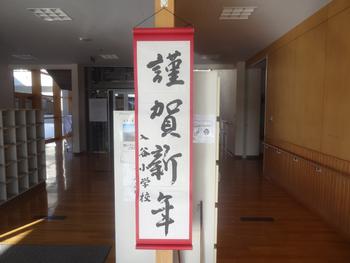 謹賀新年
入谷小学校